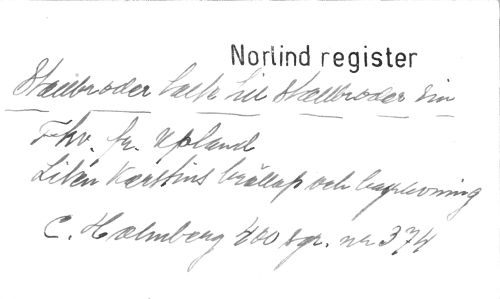 Norlind register
Stallbroder talte till Stallbroder sin
Fkv. fr. Upland
Liten Kerstins bröllop och begravning
C. Holmberg 400 sgr. nr 374